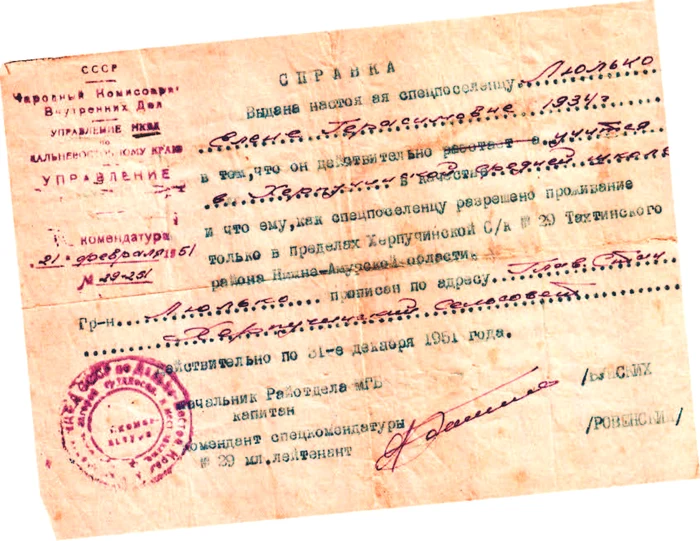 СССР
Народный Комиссариат
Внутренних Дел
УПРАВЛЕНИЕ НКВД
по
ДАЛЬНЕВОСТОЧНОМУ КРАЮ
УПРАВЛЕНИЕ
комендатура
21 февраля 1951
№ 29-251
СПРАВКА
Выдана настоя ая спецпоселенцу Люлько
Елене Герасимовне 1934 г
в том, что он действительно работает в учится
в Херпучинской средней школе
в качестве
и что ему, как спецпоселенцу разрешено проживание
только в пределах Херпучинской С/к № 29 Тахтинского
района Нижне-Амурской области.
Гр-н Люлько прописан по адресу Глав. Стан
Херпучинский сельсовет
действительно по 31-е декабря 1951 года.
Начальник Райотдела МГБ
капитан
комендант спецкомендатуры
№ 29 мл. лейтенант
/РОВЕНСКИЙ/